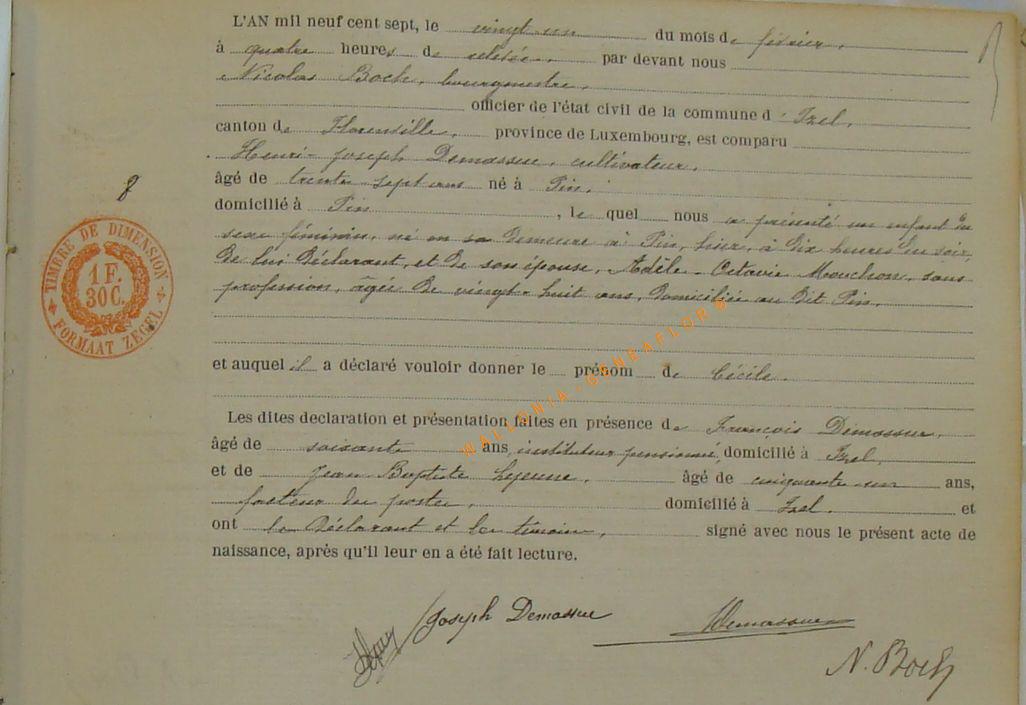 L'AN mil neuf cent sept, le vingt un du mois de février,
à quatre heures de relevée, par devant nous
Nicolas Boch, bourgmestre,
officier de l'état civil de la commune d'Izel,
canton de Florenville, province de Luxembourg, est comparu
Henri-Joseph Demassue, cultivateur,
âgé de trente sept ans né à Pin,
domicilié à Pin, le quel nous a présenté un enfant du
sexe féminin, né en sa demeure à Pin, hier, à dix heures du soir,
de lui déclarant, et de son épouse, Adèle-Octavie Mouchon, sans
profession, âgée de vingt-huit ans, domiciliée au dit Pin,
et auquel il a déclaré vouloir donner le prénom de Cécile.
Les dites declaration et présentation faites en présence de François Demassue,
âgé de soixante ans, instituteur pensionné, domicilié à Izel,
et de Jean Baptiste Lejeune, âgé de cinquante un ans,
facteur des postes, domicilié à Izel. et
ont le déclarant et les témoins, signé avec nous le présent acte de
naissance, après qu'il leur en a été fait lecture.
8
TIMBRE DE DIMENSION
1 F.
30 C.
FORMAAT ZEGEL
WALLONIA-GENEAFLORE
Joseph Demassue
Demassue
N. Boch